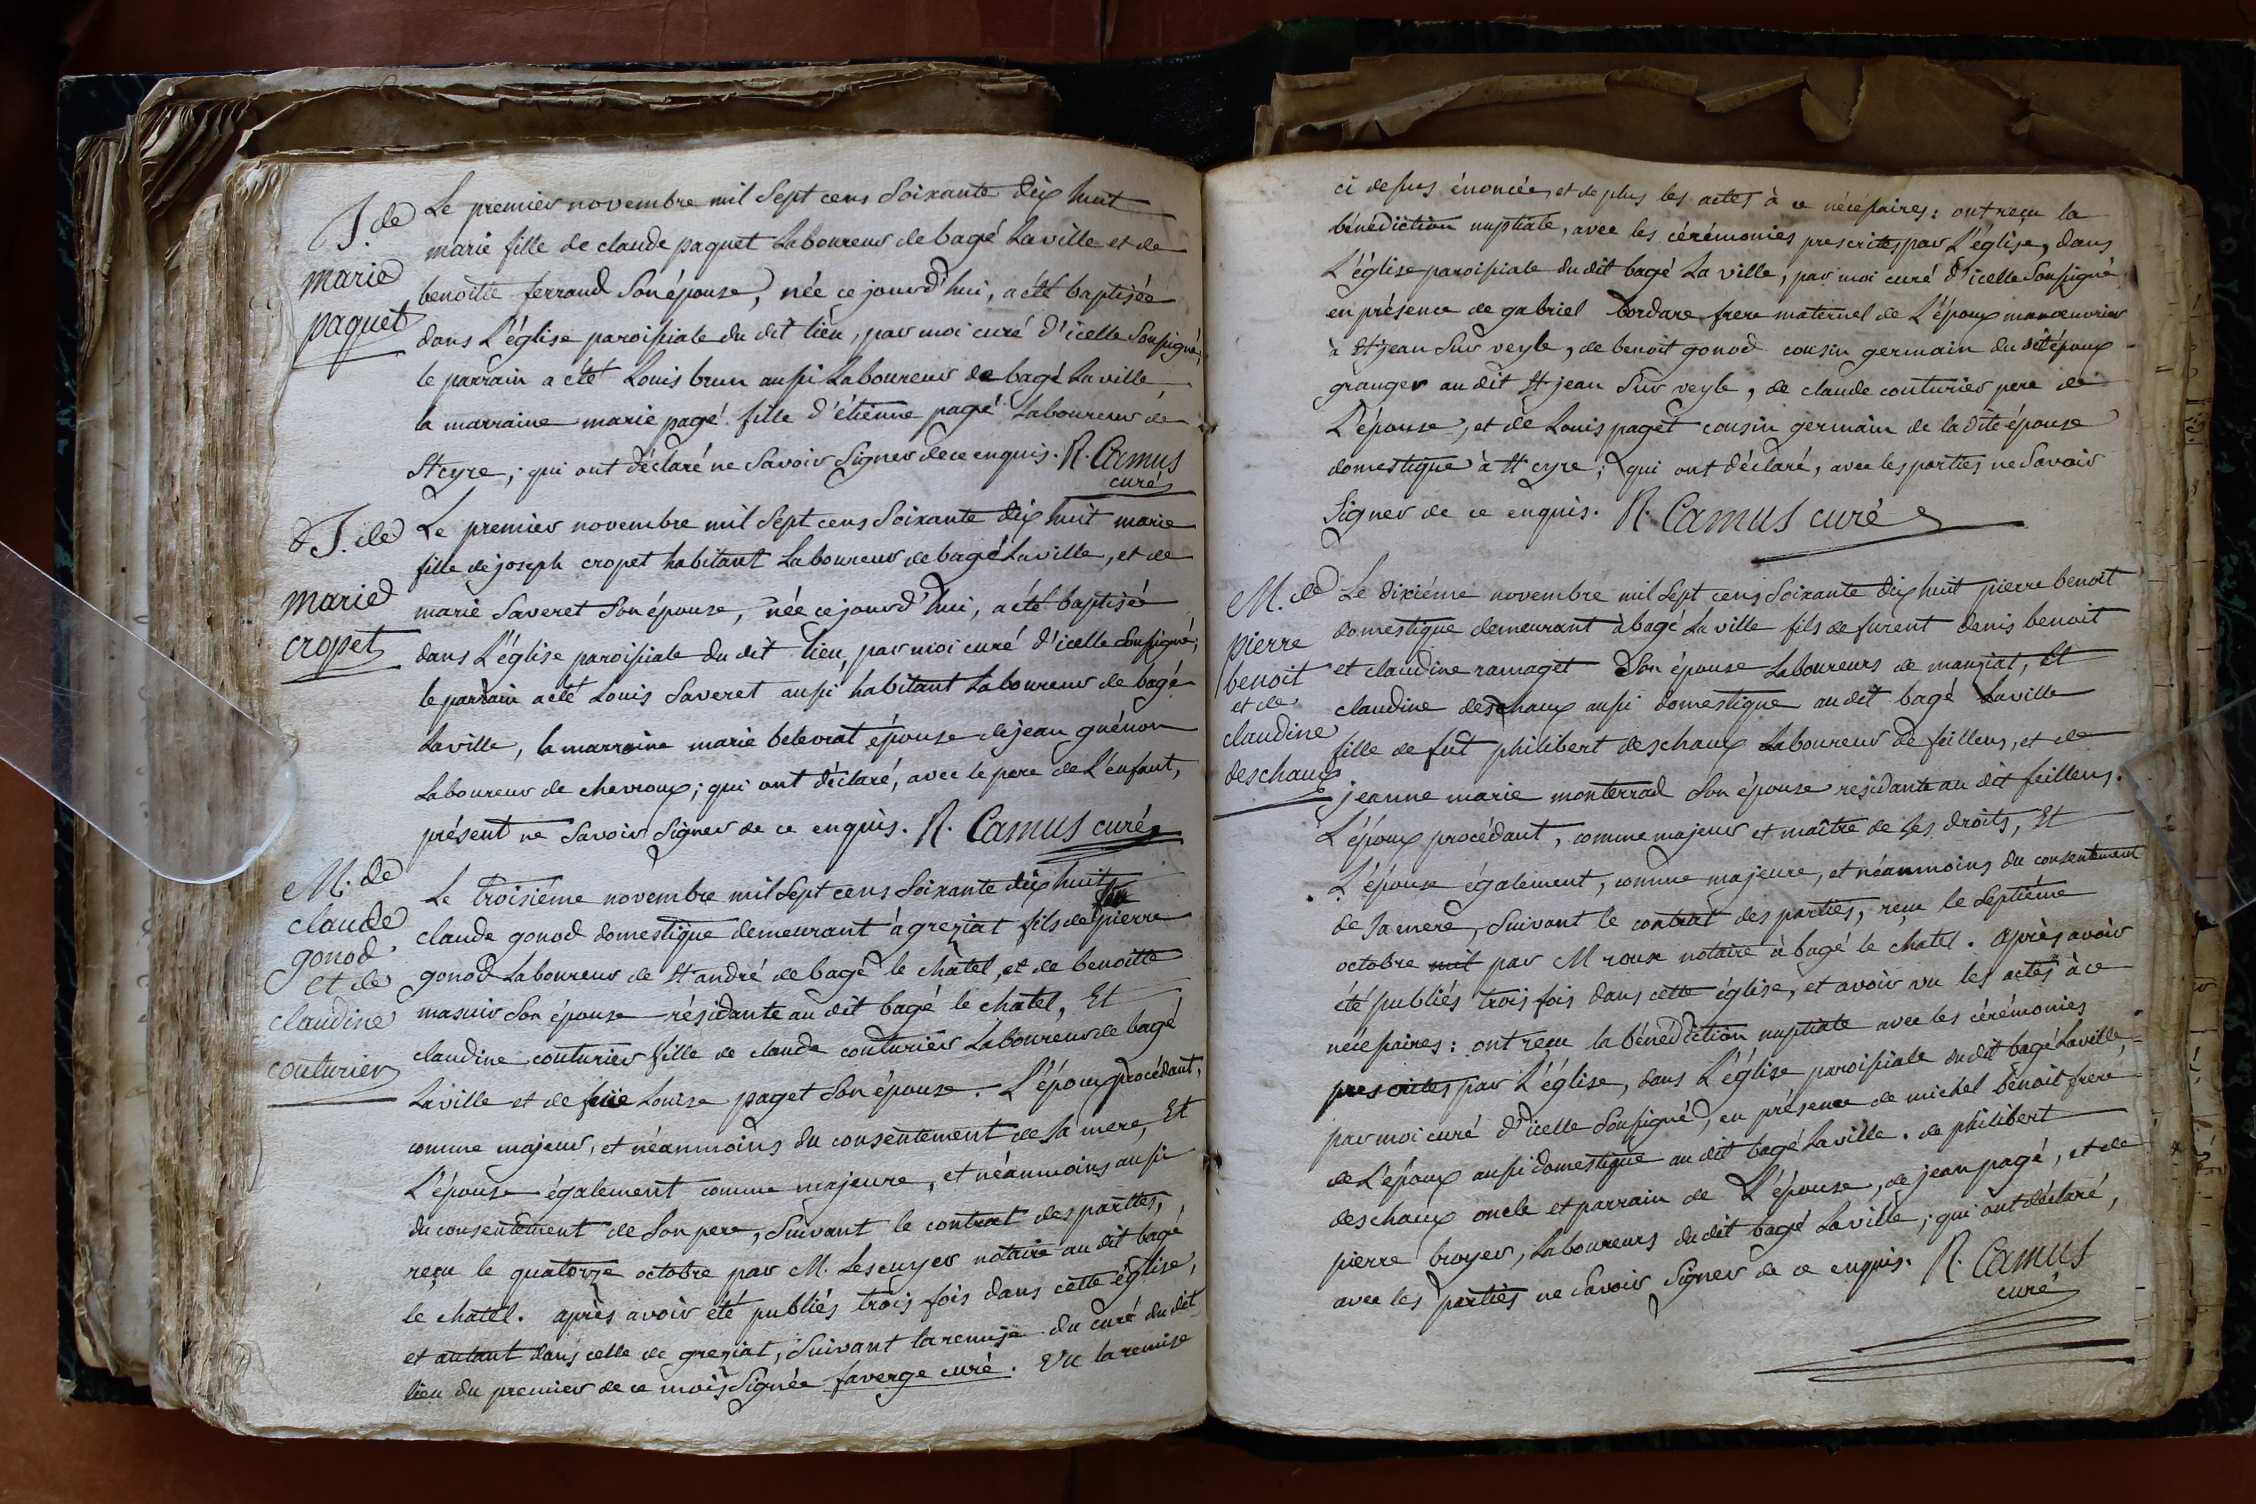 J. de
marie
paquet
Le premier novembre mil sept cens soixante dix huit
marie fille de claude paquet Laboureur de bagé La ville et de
benoitte ferrand son épouse, née ce jourd'hui, a été baptisée
dans L'église paroissiale du dit lieu, par moi curé d'icelle soussigné,
le parrain a été Louis brun aussi Laboureur de bagé La ville
la marraine marie pagé fille d'étienne pagé Laboureur de
St cyre ; qui ont déclaré ne savoir signer de ce enquis. R. Camus
curé
J. de
marie
cropet
Le premier novembre mil sept cens soixante dix huit marie
fille de joseph cropet habitant Laboureur de bagé La ville, et de
marie saveret son épouse, née ce jourd'hui, a été baptisé
dans L'église paroissiale du dit lieu, par moi curé d'icelle soussigné ;
le parrain a été Louis saveret aussi habitant Laboureur de bagé
La ville, la marraine marie belevrat épouse de jean guénon
Laboureur de chevroux ; qui ont déclaré, avec le pere de L'enfant,
présent ne savoir signer de ce enquis. R. Camus curé
M. de
claude
gonod
et de
claudine
couturier
Le troisième novembre mil sept cens soixante dix huit
claude gonod domestique demeurant à greziat fils de feu pierre
gonod Laboureur de St andré de bagé le châtel, et de benoitte
masuir son épouse résidante au dit bagé le chatel, Et
claudine couturier fille de claude couturier Laboureur de bagé
La ville et de fuie Louise paget son épouse. L'époux procédant,
comme majeur, et néanmoins du consentement de sa mere, Et
L'épouse également comme majeure, et néanmoins aussi
du consentement de son pere, suivant le contrat des parties,
reçu le quatorze octobre par M. Lescuyer notaire au dit bagé
le chatel. après avoir été publiés trois fois dans cette église,
et autant dans celle de greziat, suivant la remise du curé du dit
lieu du premier de ce mois signée faverge curé. Vu la remise
ci dessus énoncée, et de plus les actes à ce nécessaires : ont reçu la
bénédiction nuptiale, avec les cérémonies prescrites par L'église, dans
L'église paroissiale du dit bagé La ville, par moi curé d'icelle soussigné
en présence de gabriel bordare frere maternel de L'époux manoeuvrier
à St jean sur veyle, de benoit gonod cousin germain du dit époux
granger au dit St jean sur veyle, de claude couturier pere de
L'épouse, et de Louis paget cousin germain de la dite épouse
domestique à St cyre ; qui ont déclaré, avec les parties ne savoir
signer de ce enquis. R. Camus curé
M. de
pierre
benoit
et de
claudine
deschaux
Le dixiéme novembre mil sept cens soixante dix huit pierre benoit
domestique demeurant à bagé La ville fils de furent denis benoit
et claudine ramaget son épouse Laboureurs de manziat, Et
claudine deschaux aussi domestique au dit bagé La ville
fille de fut philibert deschaux Laboureur de feillens, et de
jeanne marie monterrad son épouse residante au dit feillens.
L'époux procédant, comme majeur et maître de ses droits, Et
L'épouse également, comme majeure, et néanmoins du consentement
de sa mere, suivant le contrat des parties, reçu le septiéme
octobre mil par M roux notaire à bagé le chatel. après avoir
été publiés trois fois dans cette église, et avoir vu les actes à ce
nécessaires : ont reçu la bénédiction nuptiale avec les cérémonies
prescrites par L'église, dans L'église paroissiale du dit bagé La ville,
par moi curé d'icelle soussigné, en présence de michel benoit frere
de L'époux aussi domestique au dit bagé La ville. de philibert
deschaux oncle et parrain de L'épouse, de jean pagé, et de
pierre broyer, Laboureurs du dit bagé La ville ; qui ont déclaré,
avec les parties ne savoir signer de ce enquis. R. Camus
curé